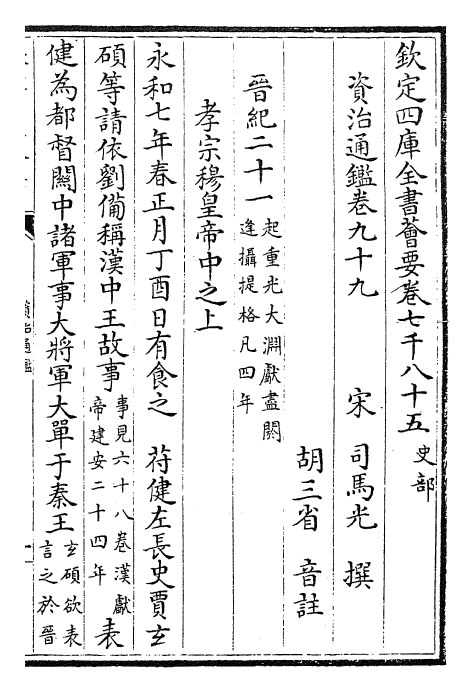 欽定四庫全書薈要卷七千八十五 史部
資治通鑑卷九十九 宋 司馬光 撰
胡三省 音註
晉紀二十一 起重光大淵獻盡閼
逢攝提格凡四年
孝宗穆皇帝中之上
永和七年春正月丁酉日有食之 苻健左長史賈玄
碩等請依劉備稱漢中王故事 事見六十八卷漢獻
帝建安二十四年 表
健為都督關中諸軍事大將軍大單于秦王 玄碩欲表
言之於晉